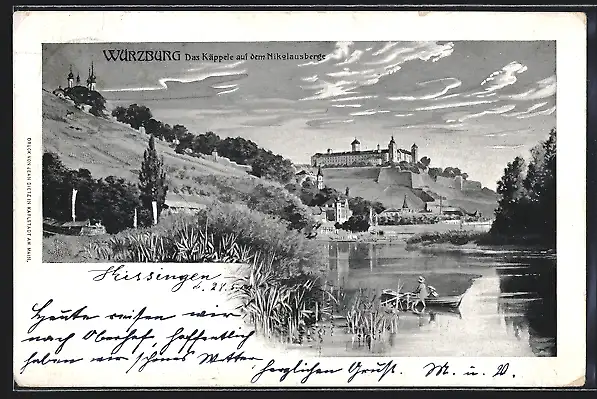 WÜRZBURG Das Käppele auf dem Nikolausberge
DRUCK VON JEAN DIETZ IN KARLSTADT AM MAIN.
Kissingen
Heute reisen wir
nach Oberhof, hoffentlich
haben wir schönes Wetter
herzlichen Gruß. M. u. V.